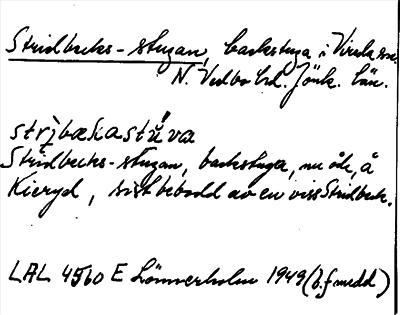 Stridbecks-stugan, backstuga i Virda sn.
N. Vedbo hd. Jönk. län.
strịbækastǘva
Stridbecks-stugan, backstuga, nu öde, å
Kieryd, sist bebodd av en viss Stridbeck.
LAL 4560 E Lönnerholm 1949 (b. f. medd)